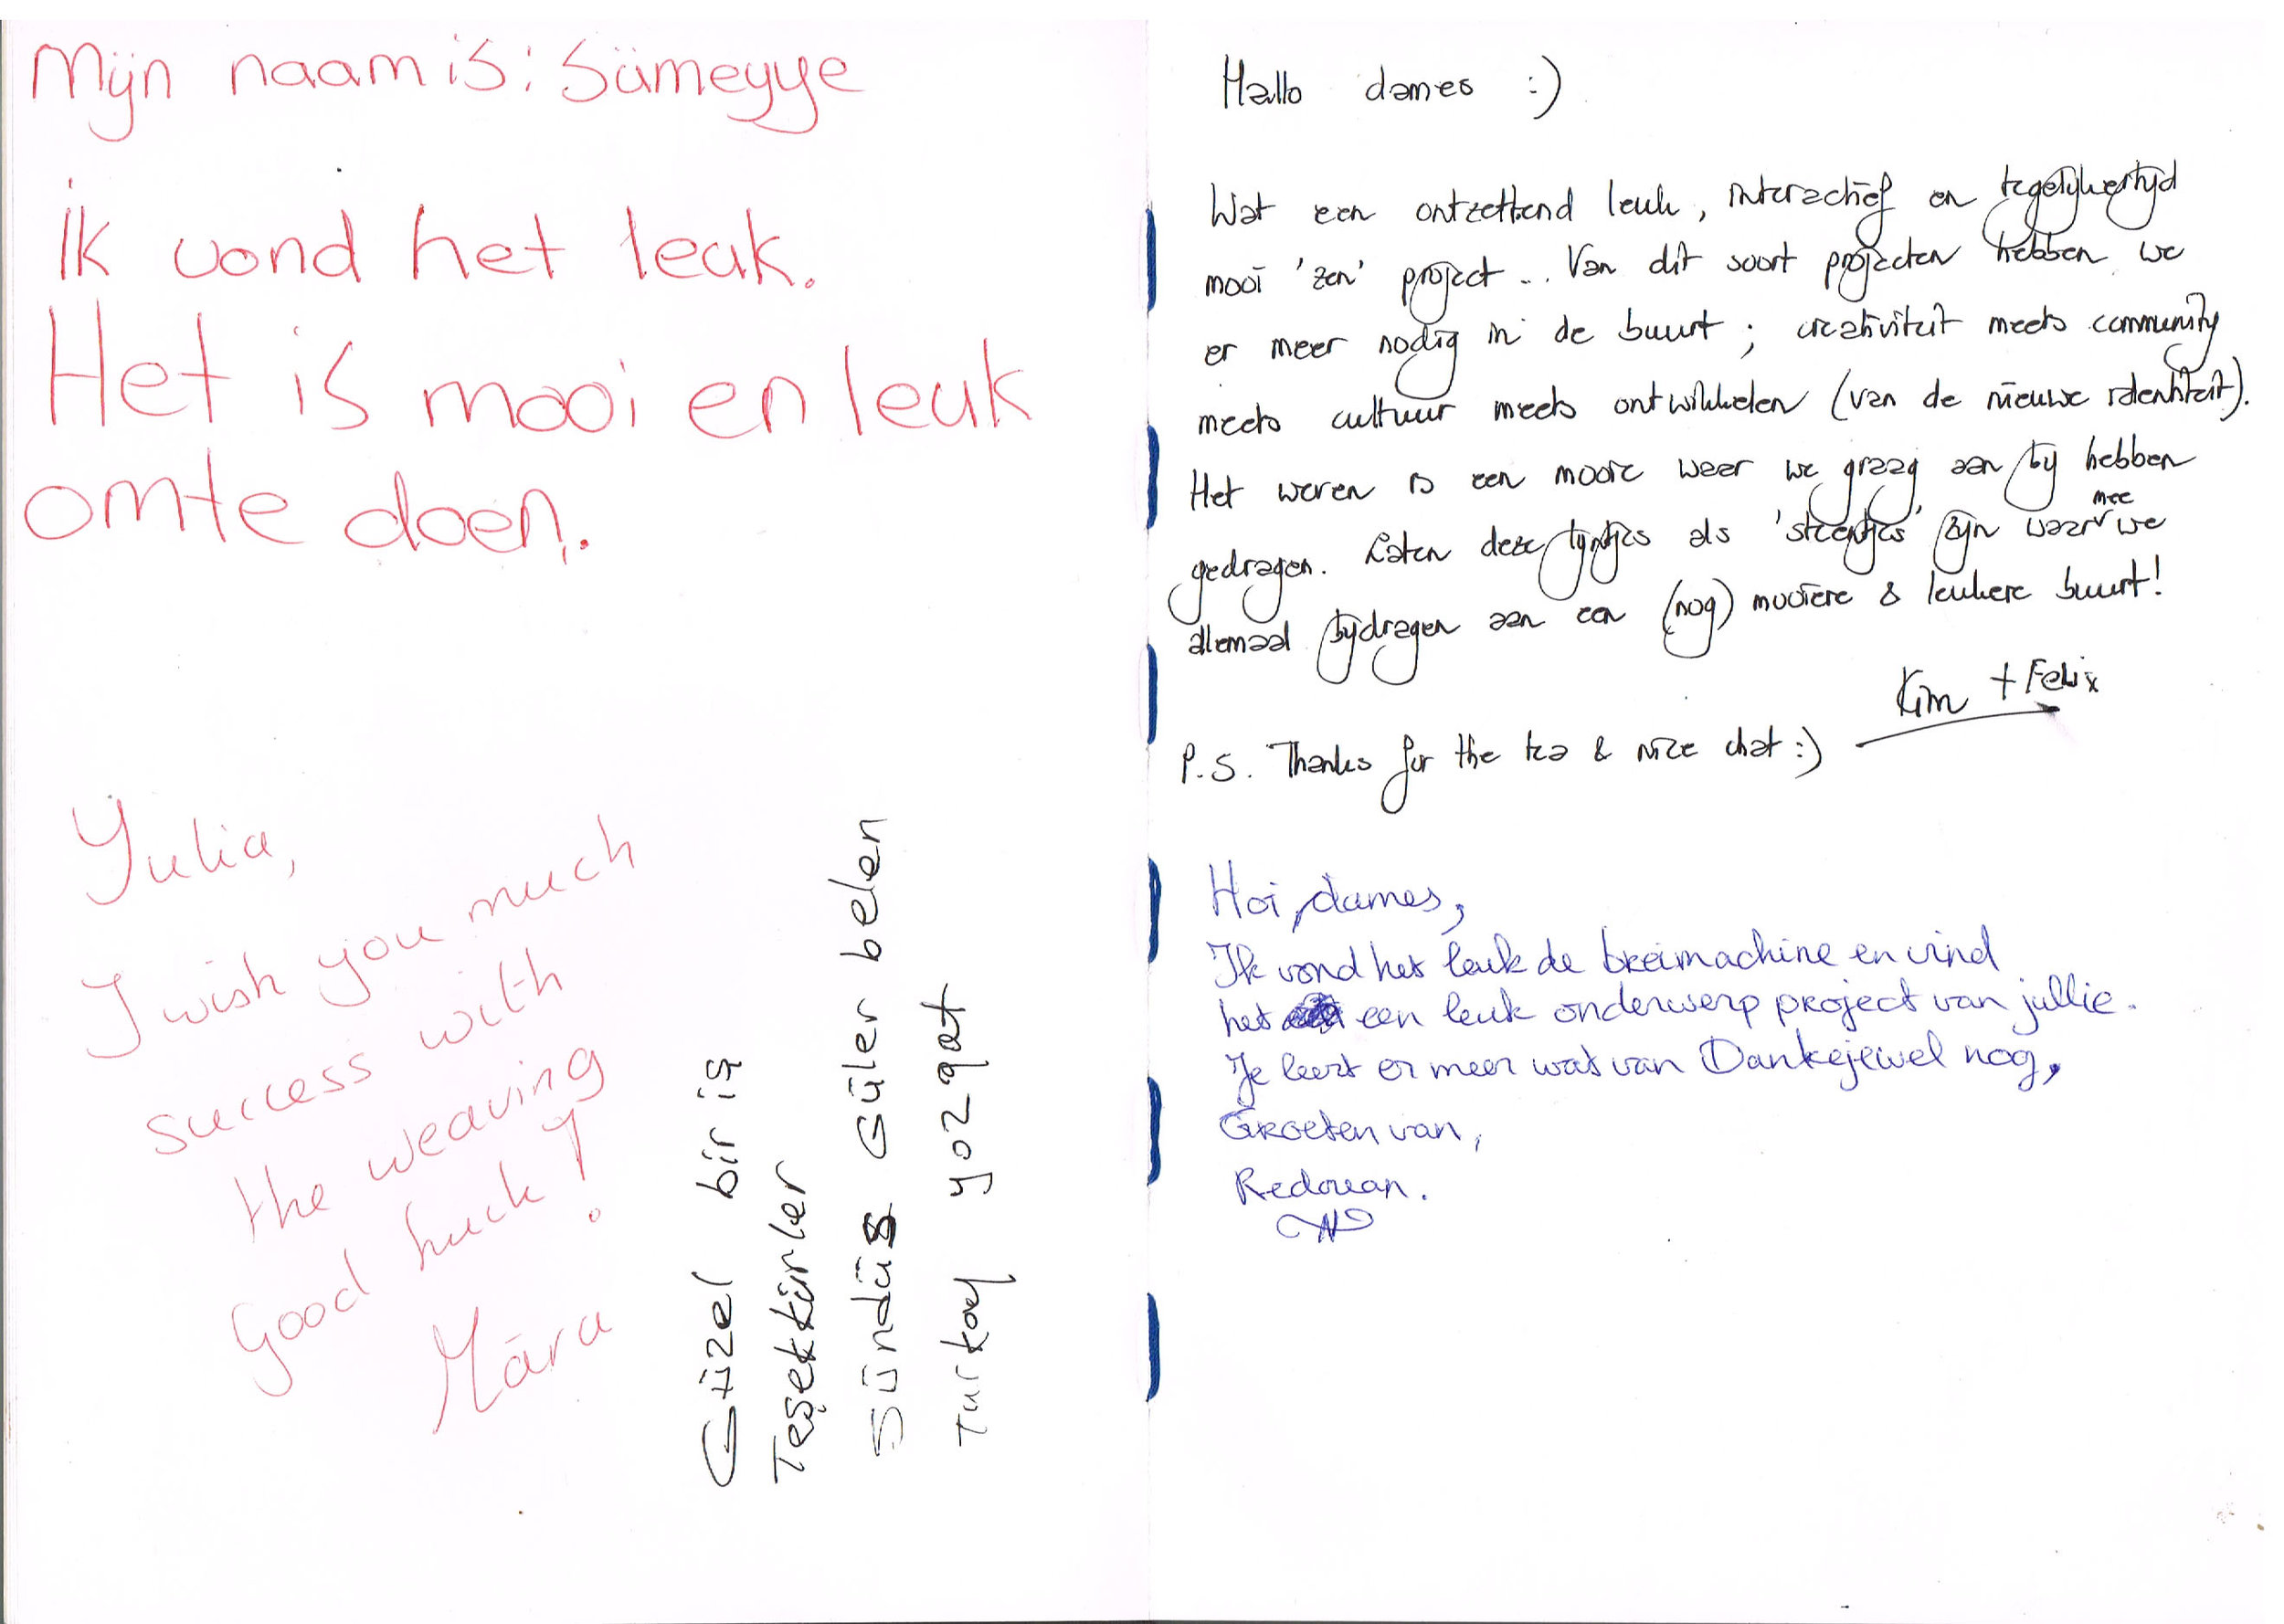 Mijn naam is: Sümeyye
ik vond het leuk.
Het is mooi en leuk
omte doen.
Yulia,
I wish you much
success with
the weaving
Good luck!
Māra
Güzel bir iş
Teşekkürler
Sündüs Güler belen
Turkoey yozgat
Hallo dames :)
Wat een ontzettend leuk, interactief en tegelijkertijd
mooi 'zen' project... Van dit soort projecten hebben we
er meer nodig in de buurt; creativiteit meets community
meets cultuur meets ontwikkelen (van de nieuwe identiteit).
Het weven is een mooie weer we graag aan bij hebben
gedragen. Laten deze lijntjes als 'steentjes' zijn waar mee we
allemaal bijdragen aan een (nog) mooiere & leukere buurt!
Kim + Felix
P.S. Thanks for the tea & nice chat :)
Hoi, dames,
Ik vond het leuk de breimachine en vind
het een leuk onderwerp project van jullie.
Je leert er meer wat van Dankejewel nog,
Groeten van,
Redouan.